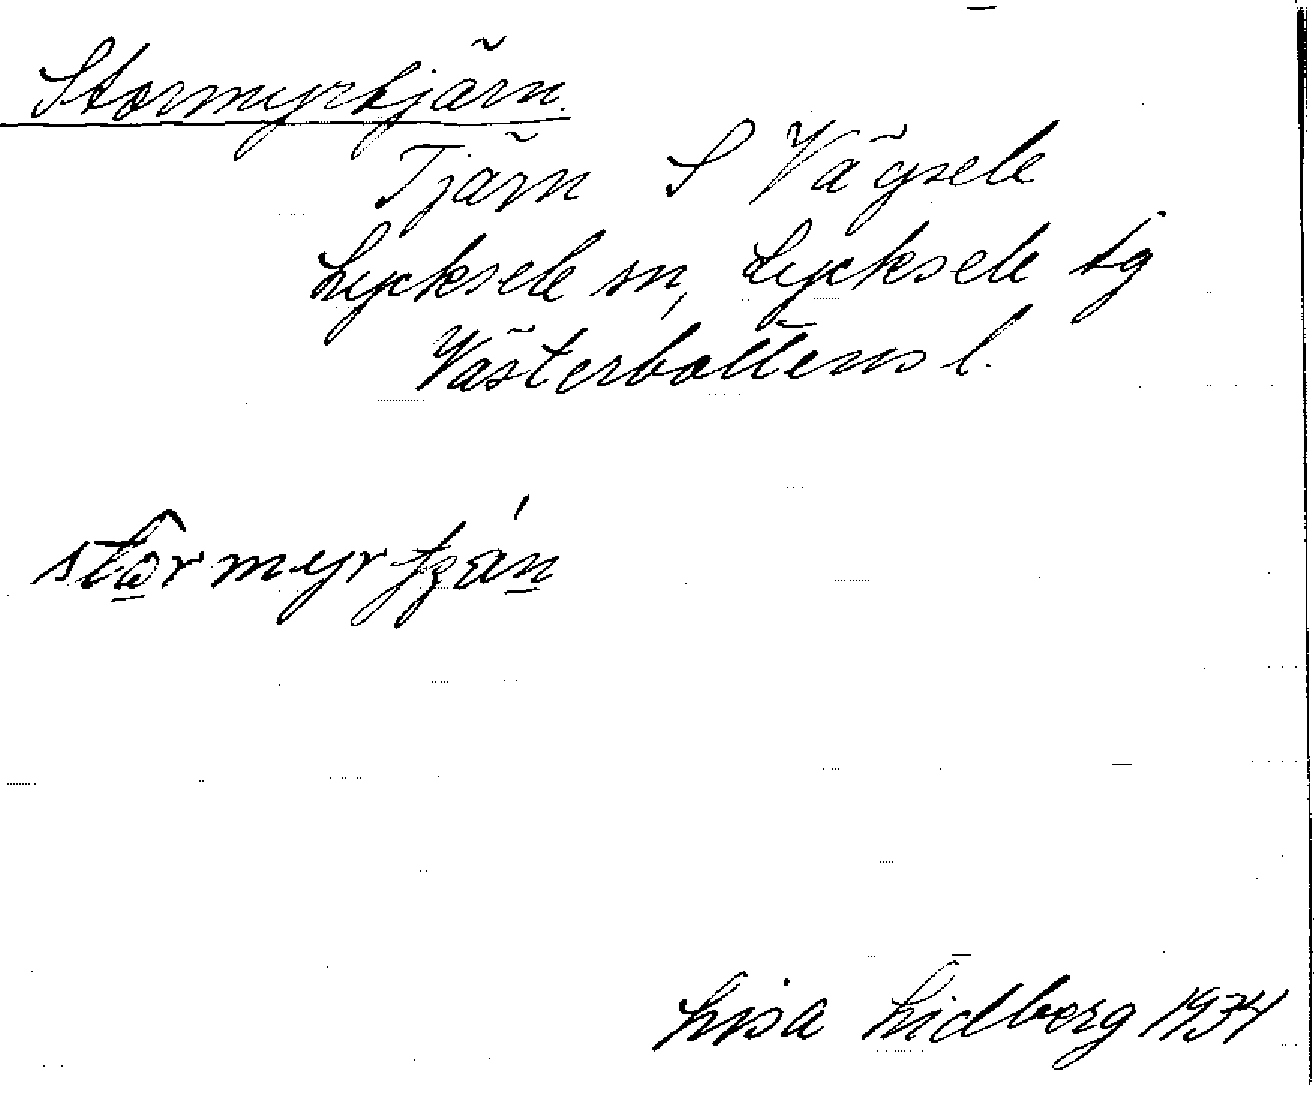 Stormyrtjärn.
Tjärn S Vägsele
Lycksele sn, Lycksele tg
Västerbottens l.
stǫ̂rmyrtʒáṉ
Lisa Lidberg 1934